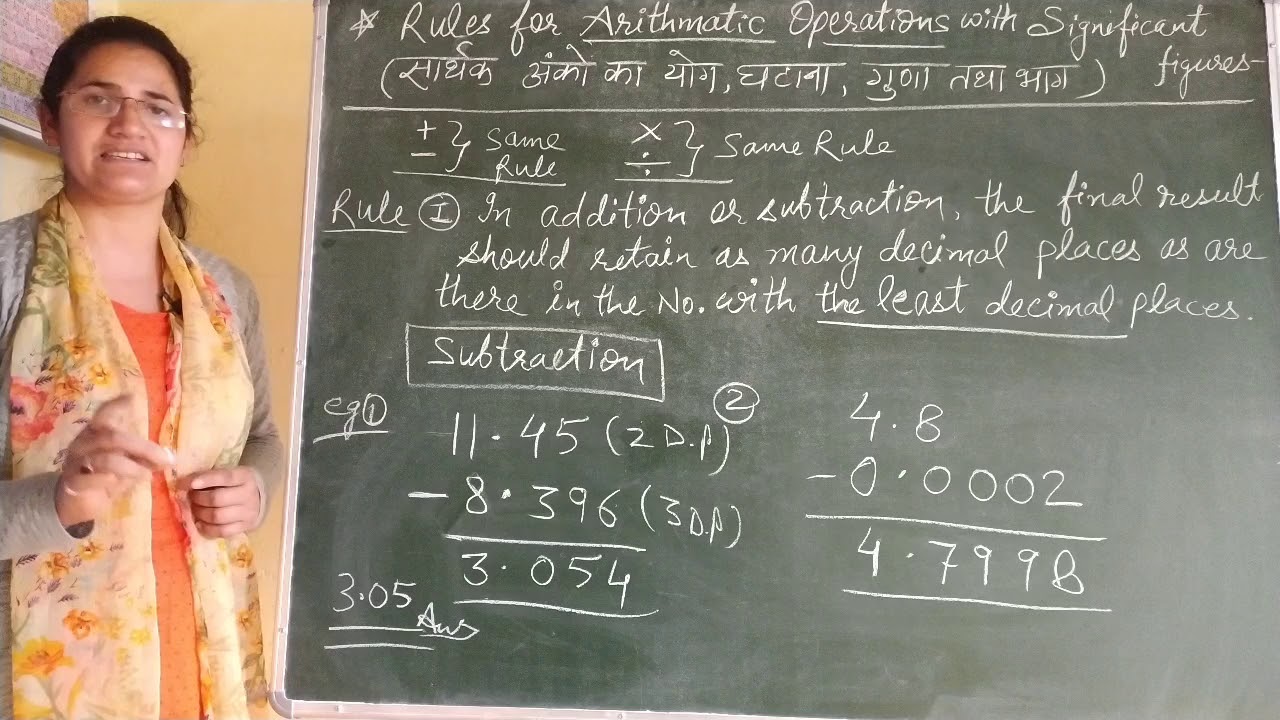 * Rules for Arithmatic Operations with Significant figures-
(सार्थक अंको का योग, घटाना, गुणा तथा भाग)
+ − } Same Rule
× ÷ } Same Rule
Rule ① In addition or subtraction, the final result
should retain as many decimal places as are
there in the No. with the least decimal places.
Subtraction
eg①
11.45 (2 D.p)
- 8.396 (3 D.p)
3.054
3.05 Ans
②
4.8
- 0.0002
4.7998